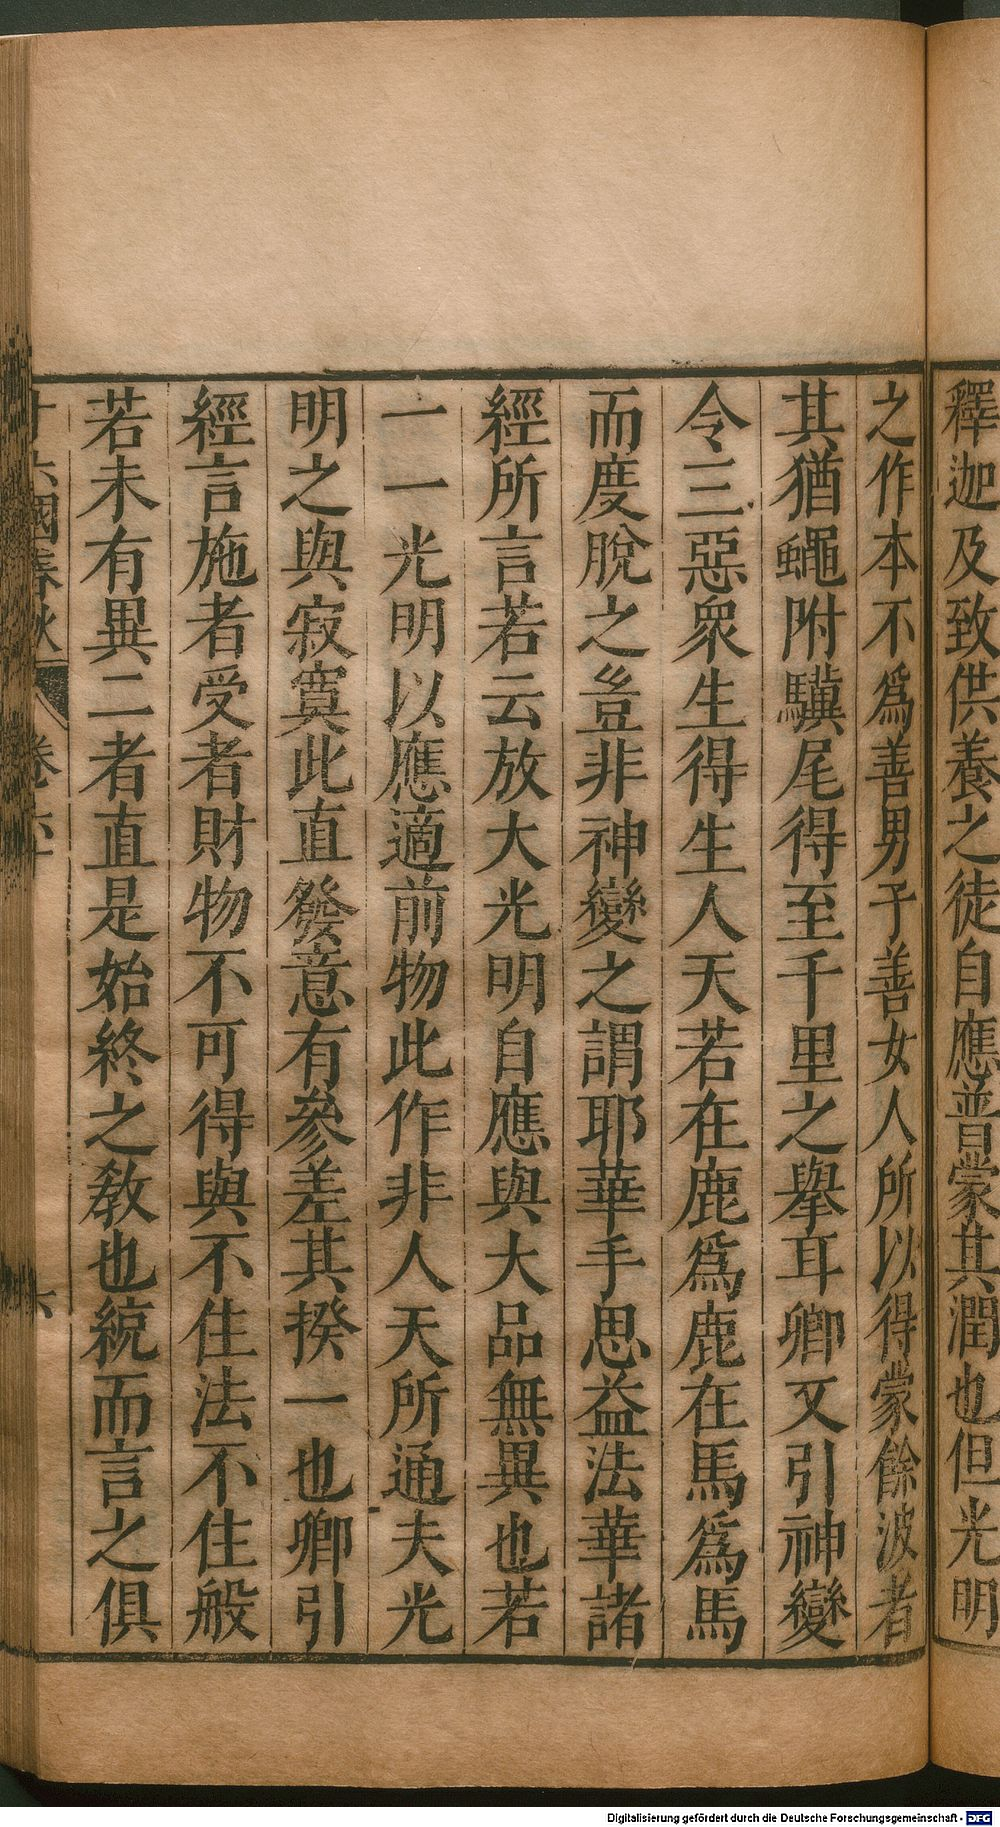 釋迦及致供養之徒自應普蒙其潤也但光明
之作本不爲善男子善女人所以得蒙餘波者
其猶蠅附驥尾得至千里之舉耳卿又引神變
令三惡衆生得生人天若在鹿爲鹿在馬爲馬
而度脫之豈非神變之謂耶華手思益法華諸
經所言若云放大光明自應與大品無異也若
一一光明以應適前物此作非人天所通夫光
明之與寂寞此直發意有參差其揆一也卿引
經言施者受者財物不可得與不住法不住般
若未有異二者直是始終之教也統而言之俱
十六國春秋 卷六十 六
Digitalisierung gefördert durch die Deutsche Forschungsgemeinschaft - DFG